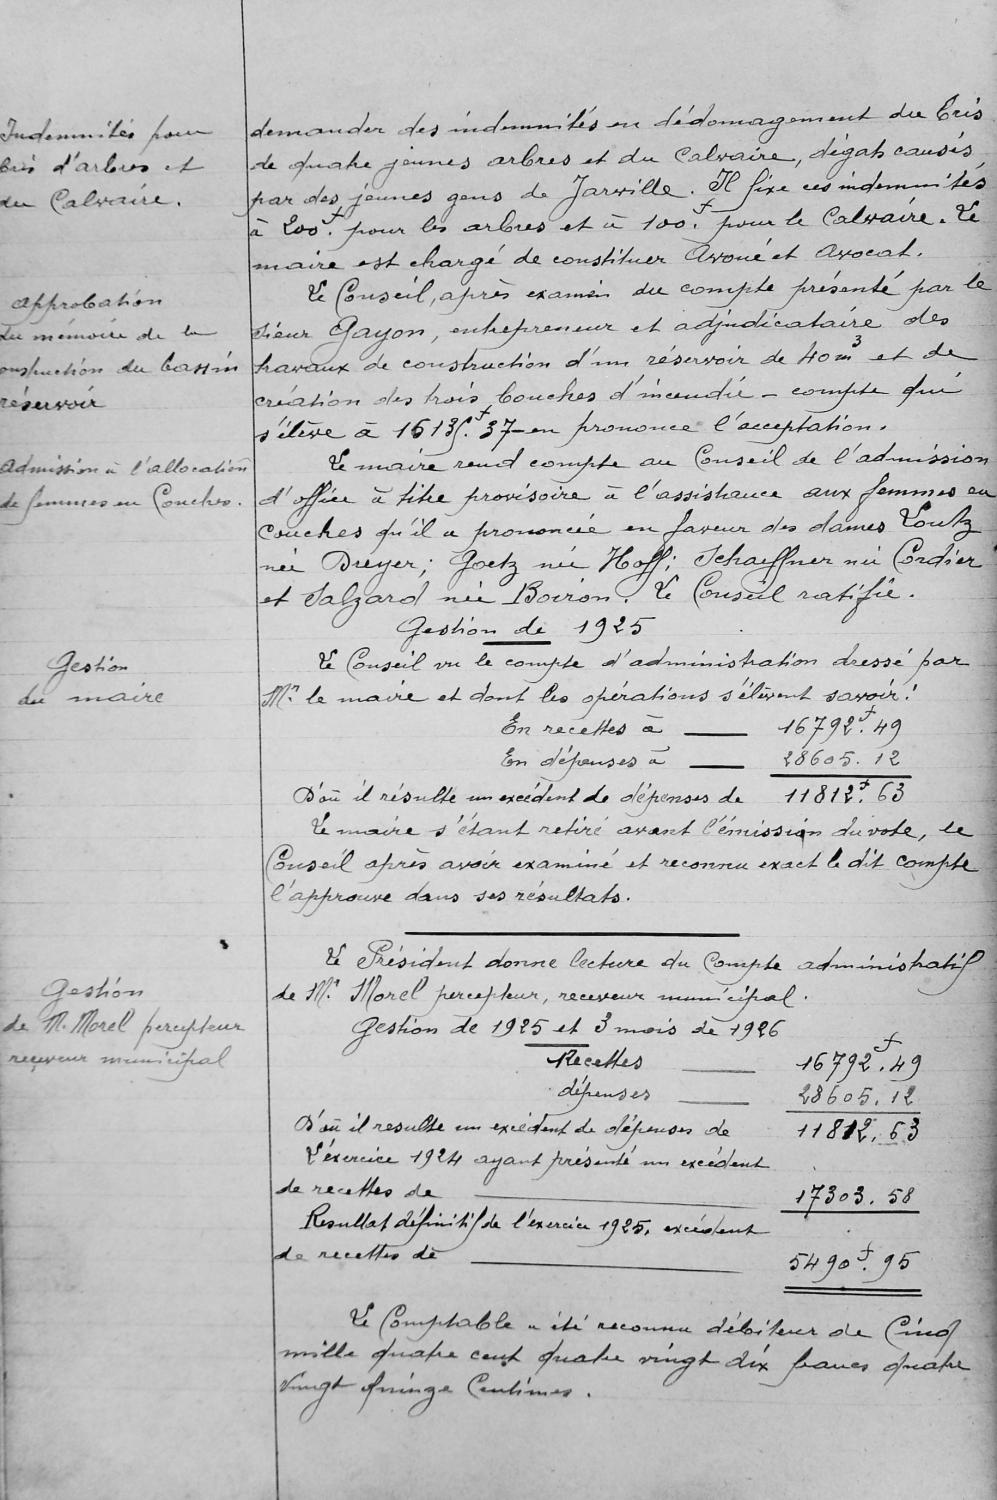 Indemnités pour
bris d'arbres et
du Calvaire.
demander des indemnités en dédomagement du bris
de quatre jeunes arbres et du Calvaire, dégats causés
par des jeunes gens de Jarville. Il fixe ces indemnités
à 200f. pour les arbres et à 100f. pour le Calvaire. Le
maire est chargé de constituer Avoué et Avocat.
approbation
du mémoire de la
construction du bassin
réservoir
Le Conseil, après examen du compte présenté par le
sieur Gayon, entrepreneur et adjudicataire des
travaux de construction d'un réservoir de 40m3 et de
création des trois bouches d'incendie - compte qui
s'élève à f. 37 - en prononce l'acceptation.
admission à l'allocation
de femmes en Couches.
Le maire rend compte au Conseil de l'admission
d'office à titre provisoire à l'assistance aux femmes en
couches qu'il a prononcée en faveur des dames Loutz
née Dreyer; Goetz née Hoff; Schaeffner née Cordier
et Salzard née Boiron. Le Conseil ratifie.
Gestion de 1925
Gestion
du maire
Le Conseil vu le compte d'administration dressé par
Mr. le maire et dont les opérations s'élèvent savoir:
En recettes à 16792f.49
En dépenses à 28605.12
D'où il résulte un excédent de dépenses de 11812f.63
Le maire s'étant retiré avant l'émission du vote, le
Conseil après avoir examiné et reconnu exact le dit compte
l'approuve dans ses résultats.
Gestion
de M. Morel percepteur
receveur municipal
Le Président donne lecture du Compte administratif
de Mr. Morel percepteur, receveur municipal.
Gestion de 1925 et 3 mois de 1926
Recettes 16792f.49
dépenses 28605.12
D'où il resulte un excédent de dépenses de 11812.63
L'éxercice 1924 ayant présenté un excédent
de recettes de 17303.58
Resultat définitif de l'exercice 1925, excédent
de recettes de 5490f.95
Le Comptable a été reconnu débiteur de Cinq
mille quatre cent quatre vingt dix francs quatre
vingt quinze Centimes.